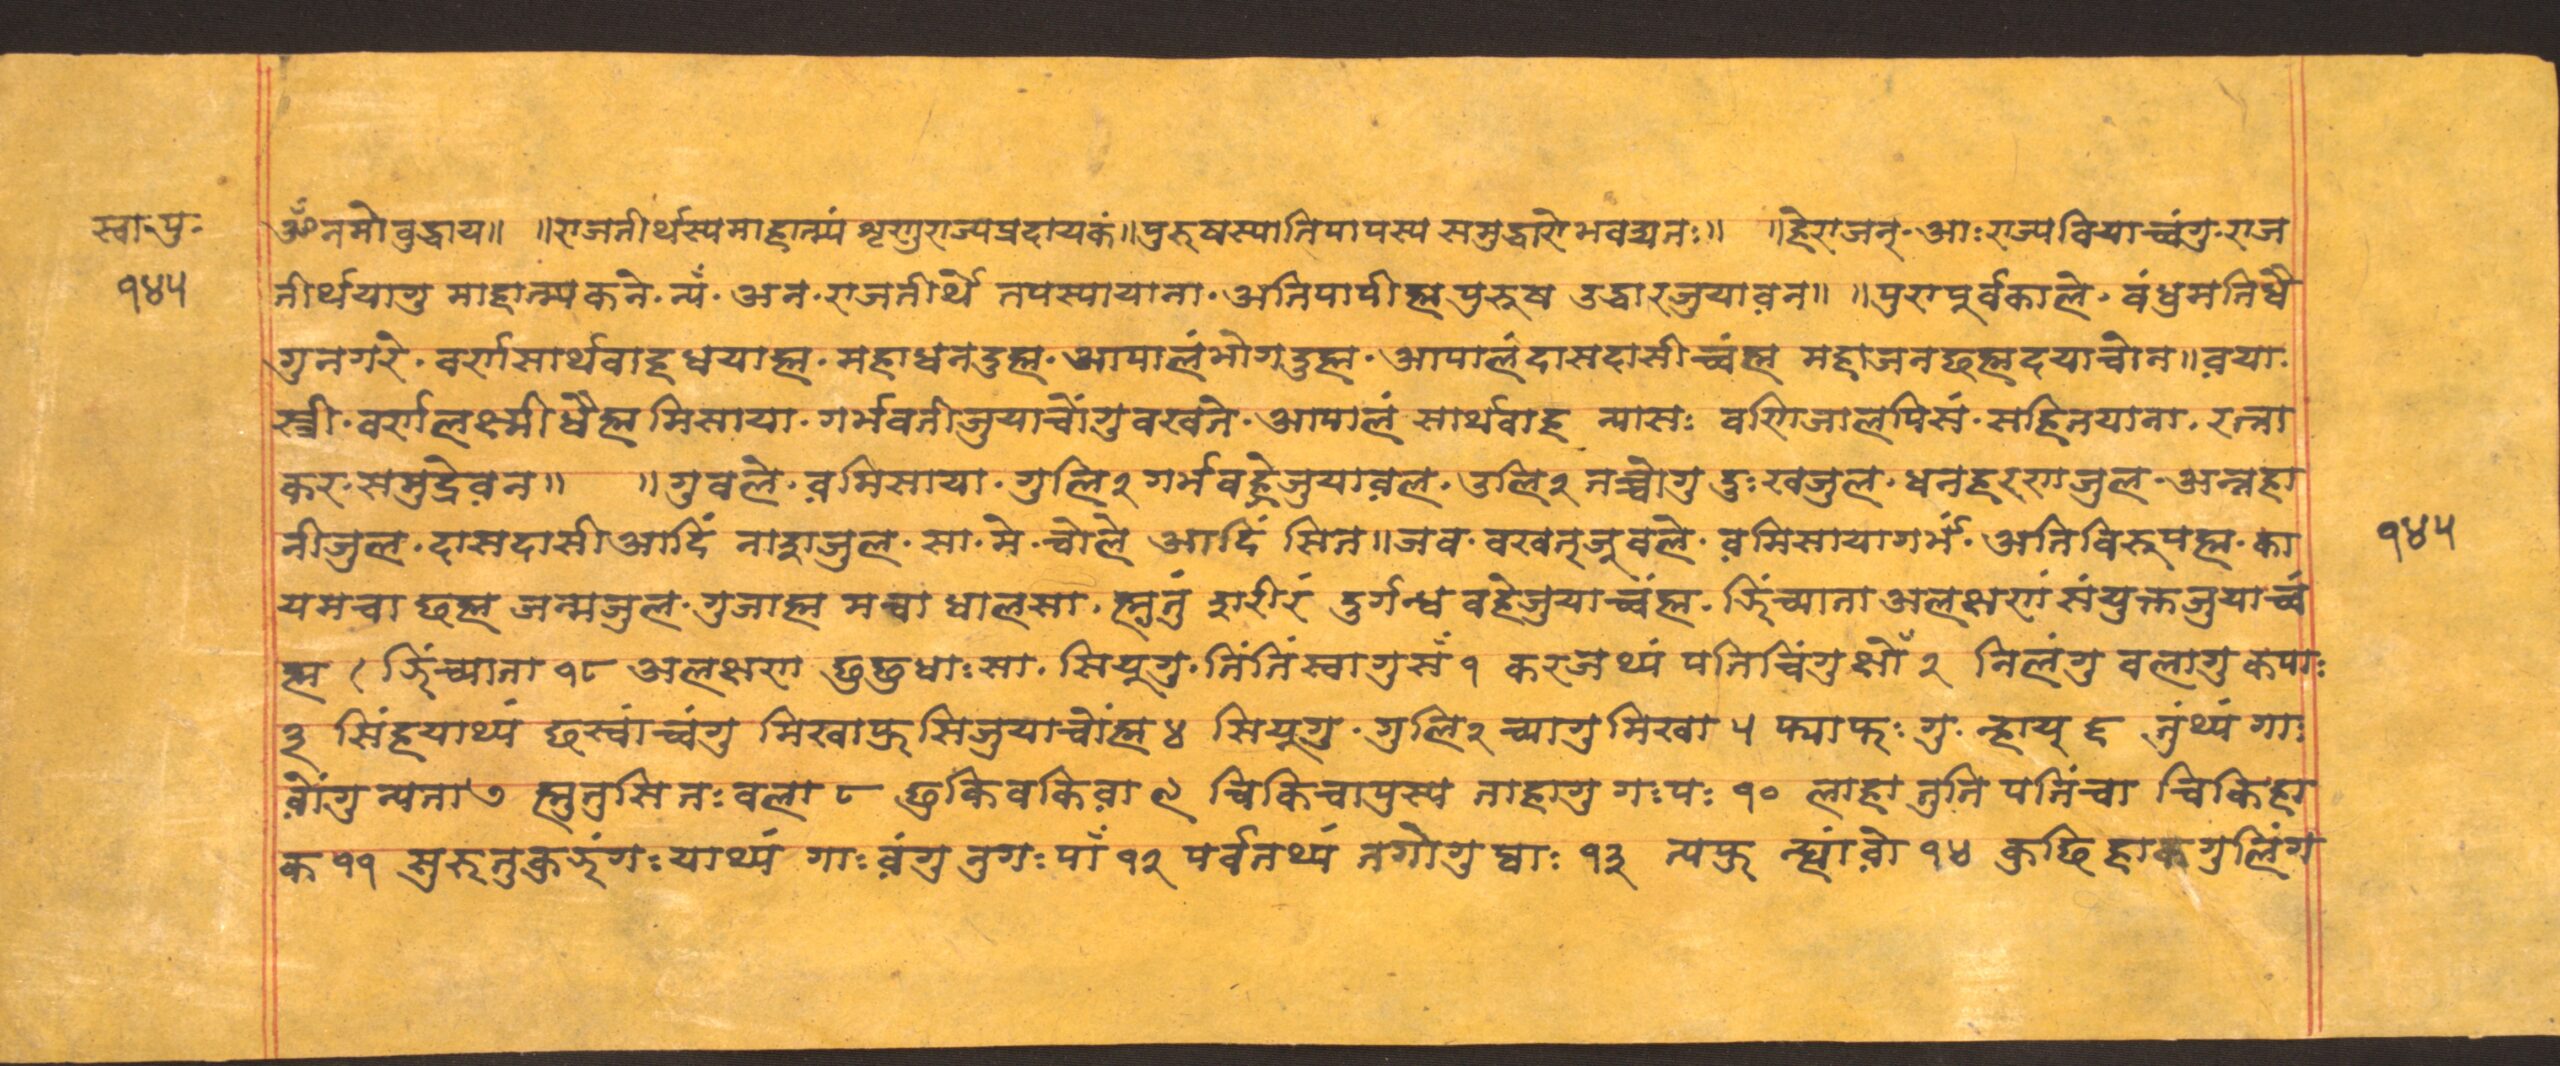 स्वा.पु.
१४५
ॐ नमो बुद्धाय॥ ॥राजतीर्थस्य माहात्म्यं शृणु राज्यप्रदायकं॥ पुरुषस्यातिपापस्य समुद्धारो भवद्यतः॥ ॥हे राजन्. आः राज्य वियाच्वंगु. राज
तीर्थयागु माहात्म्य कने. न्यँ. अन. राजतीर्थे तपस्यायाना. अतिपापीह्म पुरुष उद्धारजुयावन॥ ॥पुरा पूर्वकाले. बंधुमति धै
गु नगरे. वर्ण सार्थवाह धयाह्म. महाधन दुह्म. आपालं भोग दुह्म. आपालं दासदासी च्वंह्म महाजन छह्म दयाचोन॥ वया.
स्त्री. वर्णलक्ष्मी धैह्म मिसाया. गर्भवती जुयाचोंगु वखते. आपालं सार्थवाह त्यासः वणिजालपिसं. सहितयाना. रत्ना
कर. समुद्रे वन॥ ॥गुवले. व मिसाया. गुलि२ गर्भ वह्रे जुयावल. उलि२ नच्चोगु दुःख जुल. धन हरण जुल. अन्न हा
नी जुल. दासदासी आदिं नाश जुल. सा. मे. चोले आदिं सित॥ जव. वखत् जुवले. व मिसाया गर्भं. अति विरुपह्म. का
यमचा छह्म जन्म जुल. गुजाह्म मचा धालसा. ह्मुतुं शरीरं दुर्गन्ध वहेजुयाच्वंह्म. झिंच्याता अलक्षणं संयुक्त जुयाच्वं
ह्म ( झिंच्याता १८ अलक्षण छुछु धाःसा. सियुगु. तिंतिंस्वागु सँ १ करजथ्यं पतिचिंगु क्षों २ निलंगु वलागु कपाः
३ सिंहयाथ्यं छस्वांच्वंगु मिखाफुसि जुयाचोंह्म ४ सियुगु. गुलि२ च्यागु मिखा ५ फ्याफः गु. न्हाय् ६ तुंथ्यं गाः
वोंगु न्यता ७ ह्मुतुसि तःवला ८ छुकिवकि वा ९ चिकिचापुस्य ताहागु गःपः १० लाहा तुति पतिंचा चिकिहा
क ११ सुरुतुकुझंगः याथ्यं गाः वंगु नुगः पाँ १२ पर्वतथ्यं नगोगु प्वाः १३ त्यफु न्ह्यां वो १४ कुछि हाकगुलिंग
१४५